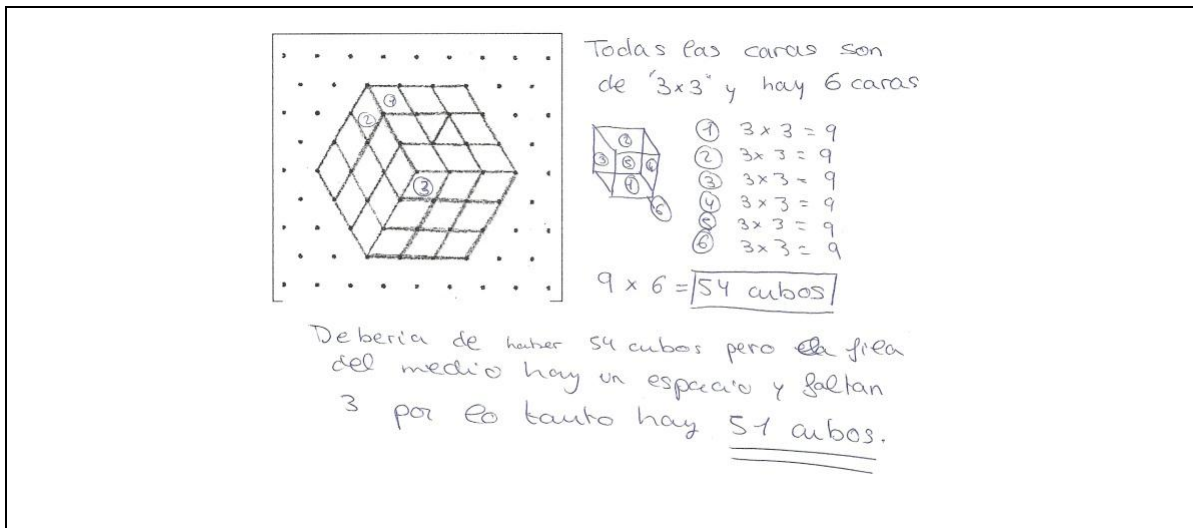 1
2
3
Todas las caras son
de "3x3" y hay 6 caras
2
3 5 4
1
6
1 3 x 3 = 9
2 3 x 3 = 9
3 3 x 3 = 9
4 3 x 3 = 9
5 3 x 3 = 9
6 3 x 3 = 9
9 x 6 = 54 cubos
Deberia de haber 54 cubos pero la fila
del medio hay un espacio y faltan
3 por lo tanto hay 51 cubos.